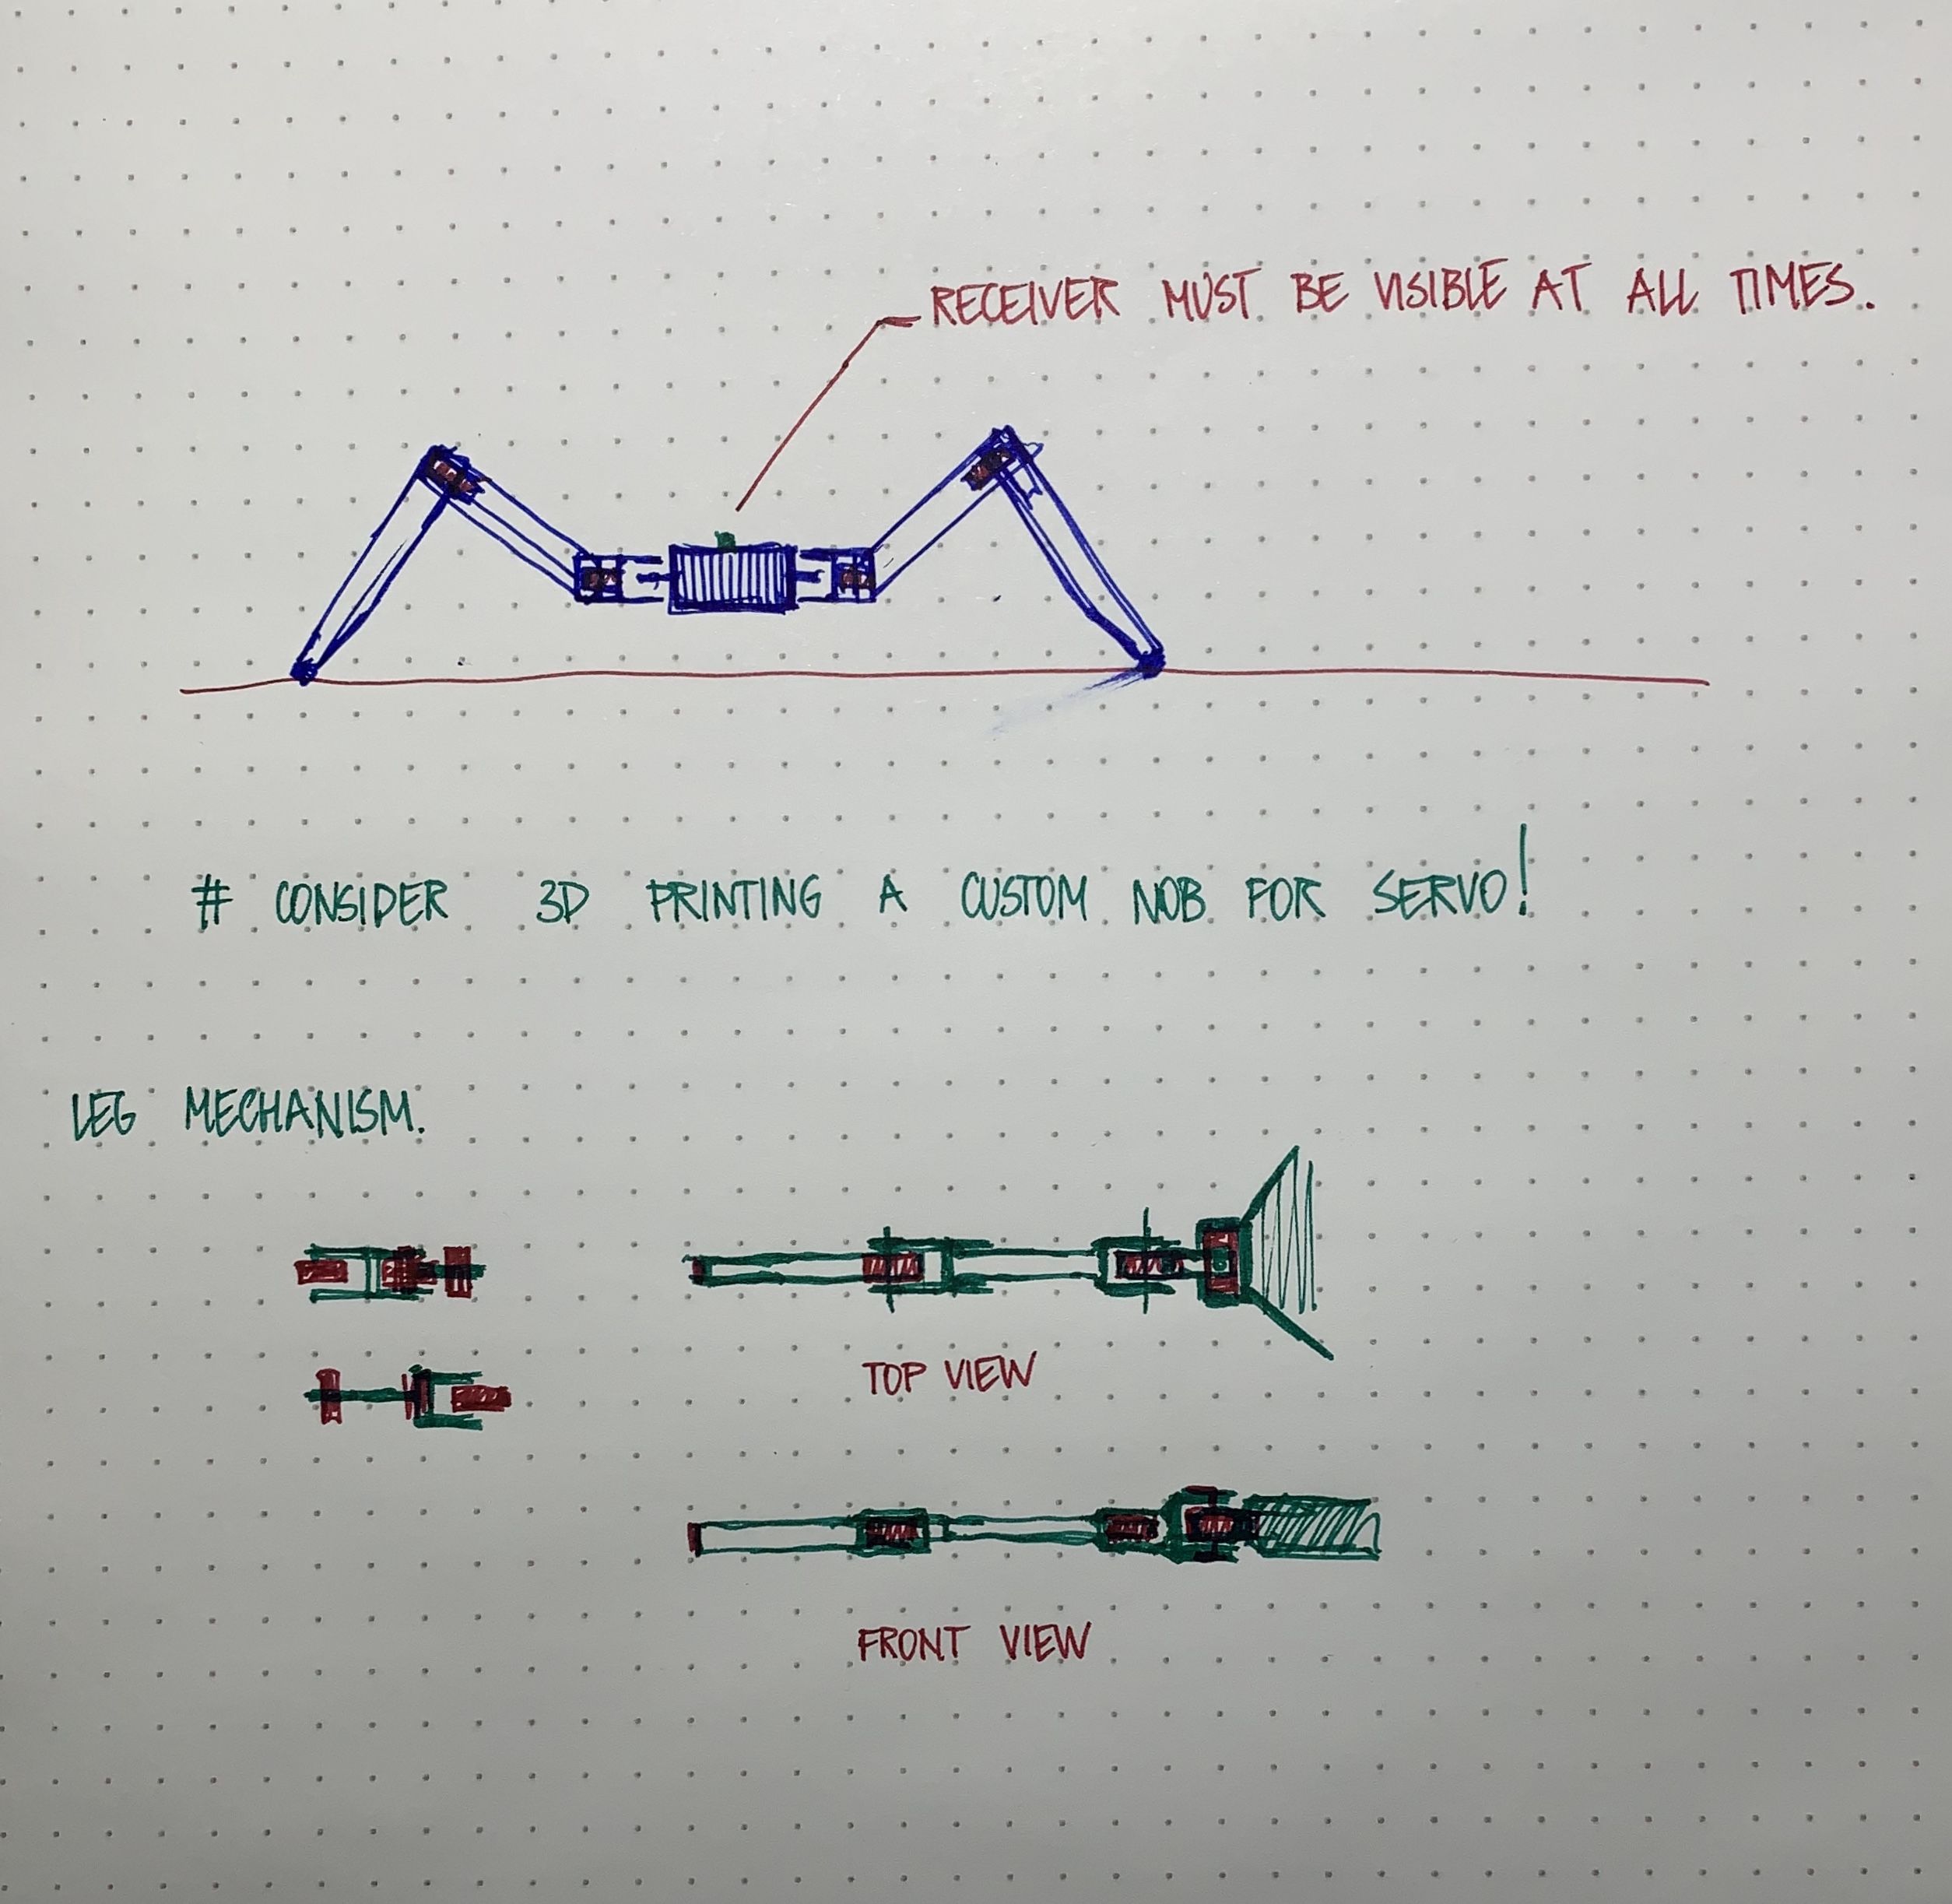 RECEIVER MUST BE VISIBLE AT ALL TIMES.
# CONSIDER 3D PRINTING A CUSTOM NOB FOR SERVO!
LEG MECHANISM.
TOP VIEW
FRONT VIEW